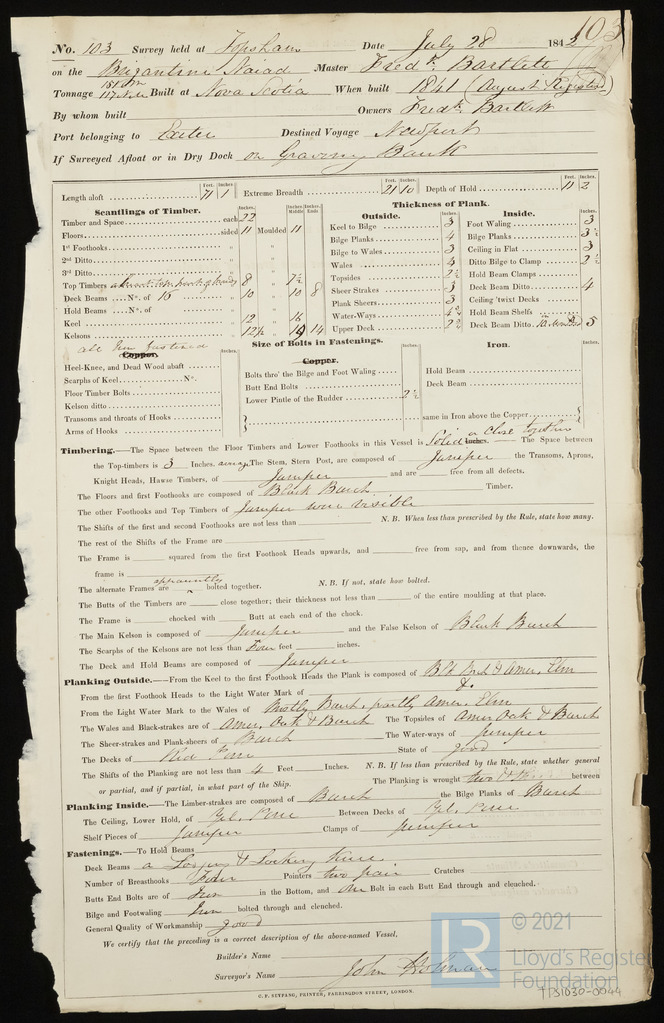 103
No. 103 Survey held at Topsham Date July 28 1842
on the Brigantine Naiad Master Fredk. Bartlett
Tonnage 117 Built at Nova Scotia When built 1841 (August Registered)
By whom built Owners Fredk. Bartlett
Port belonging to Exeter Destined Voyage Newport
If Surveyed Afloat or in Dry Dock on Graving Bank
Feet. Inches. Feet. Inches. Feet. Inches.
Length aloft 71 1 Extreme Breadth 21 10 Depth of Hold 11 2
Scantlings of Timber.
Timber and Space each 22
Floors sided 11 Moulded 11
1st Foothooks „ „
2nd Ditto „ „
3rd Ditto „ „
Top Timbers 8 7½
Deck Beams No. of 16 „ 10 „ 10 8
Hold Beams No. of „ „
Keel „ 12 „ 16
Kelsons „ 12½ „ 14
Thickness of Plank.
Outside.
Keel to Bilge 3
Bilge Planks 4
Bilge to Wales 3
Wales 4
Topsides 2½
Sheer Strakes 3
Plank Sheers 3
Water-Ways 4½
Upper Deck 2½
Inside.
Foot Waling 3
Bilge Planks 3½
Ceiling in Flat 3
Ditto Bilge to Clamp 2½
Hold Beam Clamps
Deck Beam Ditto 4
Ceiling 'twixt Decks
Hold Beam Shelfs
Deck Beam Ditto 10 Moulded 5
Size of Bolts in Fastenings.
all Iron fastened
Copper.
Heel-Knee, and Dead Wood abaft
Scarphs of Keel No.
Floor Timber Bolts
Kelson ditto
Transoms and throats of Hooks
Arms of Hooks
Copper.
Bolts thro' the Bilge and Foot Waling
Butt End Bolts
Lower Pintle of the Rudder 2½
Iron.
Hold Beam
Deck Beam
same in Iron above the Copper
Timbering.—The Space between the Floor Timbers and Lower Foothooks in this Vessel is Solid or close together Inches. — The Space between
the Top-timbers is 3 Inches. average The Stem, Stern Post, are composed of Juniper the Transoms, Aprons,
Knight Heads, Hawse Timbers, of Juniper and are free from all defects.
The Floors and first Foothooks are composed of Black Burch Timber.
The other Foothooks and Top Timbers of Juniper were visible
The Shifts of the first and second Foothooks are not less than N.B. When less than prescribed by the Rule, state how many.
The rest of the Shifts of the Frame are
The Frame is squared from the first Foothook Heads upwards, and free from sap, and from thence downwards, the
frame is
The alternate Frames are apparently bolted together. N.B. If not, state how bolted.
The Butts of the Timbers are close together; their thickness not less than of the entire moulding at that place.
The Frame is chocked with Butt at each end of the chock.
The Main Kelson is composed of Juniper and the False Kelson of Black Burch
The Scarphs of the Kelsons are not less than Four feet inches.
The Deck and Hold Beams are composed of Juniper
Planking Outside.—From the Keel to the first Foothook Heads the Plank is composed of Blk Burch & Amer. Elm
From the first Foothook Heads to the Light Water Mark of Do.
From the Light Water Mark to the Wales of Mostly Burch, partly Amer. Elm
The Wales and Black-strakes are of Amer. Oak & Burch The Topsides of Amer. Oak & Burch
The Sheer-strakes and Plank-sheers of Burch The Water-ways of Juniper
The Decks of Red Pine State of good
The Shifts of the Planking are not less than 4 Feet Inches. N.B. If less than prescribed by the Rule, state whether general
or partial, and if partial, in what part of the Ship. The Planking is wrought two between
Planking Inside.—The Limber-strakes are composed of Burch the Bilge Planks of Burch
The Ceiling, Lower Hold, of Yel. Pine Between Decks of Yel. Pine
Shelf Pieces of Juniper Clamps of Juniper
Fastenings.—To Hold Beams
Deck Beams a Lodging & Locking Knee
Number of Breasthooks Four Pointers two pair Crutches
Butts End Bolts are of Iron in the Bottom, and One Bolt in each Butt End through and cleached.
Bilge and Footwaling Iron bolted through and clenched.
General Quality of Workmanship good
We certify that the preceding is a correct description of the above-named Vessel.
Builder's Name
Surveyor's Name John Holman
C. F. SEYFANG, PRINTER, FARRINGDON STREET, LONDON.
LR © 2021
Lloyd's Register
Foundation
TPS1030-0044